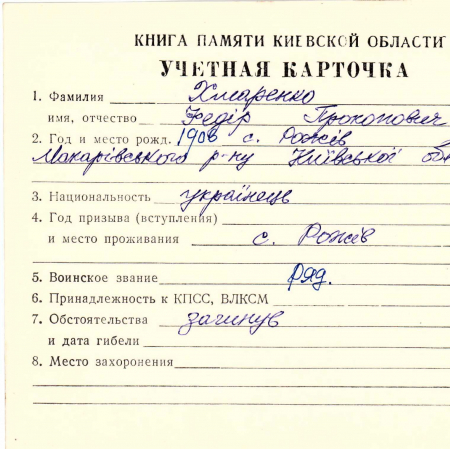 КНИГА ПАМЯТИ КИЕВСКОЙ ОБЛАСТИ
УЧЕТНАЯ КАРТОЧКА
1. Фамилия Хмаренко
имя, отчество Федір Прокопович
2. Год и место рожд. 1908 с. Рожів
Макарівського р-ну Київської
3. Национальность українець
4. Год призыва (вступления)
и место проживания с. Рожів
5. Воинское звание ряд.
6. Принадлежность к КПСС, ВЛКСМ
7. Обстоятельства загинув
и дата гибели
8. Место захоронения